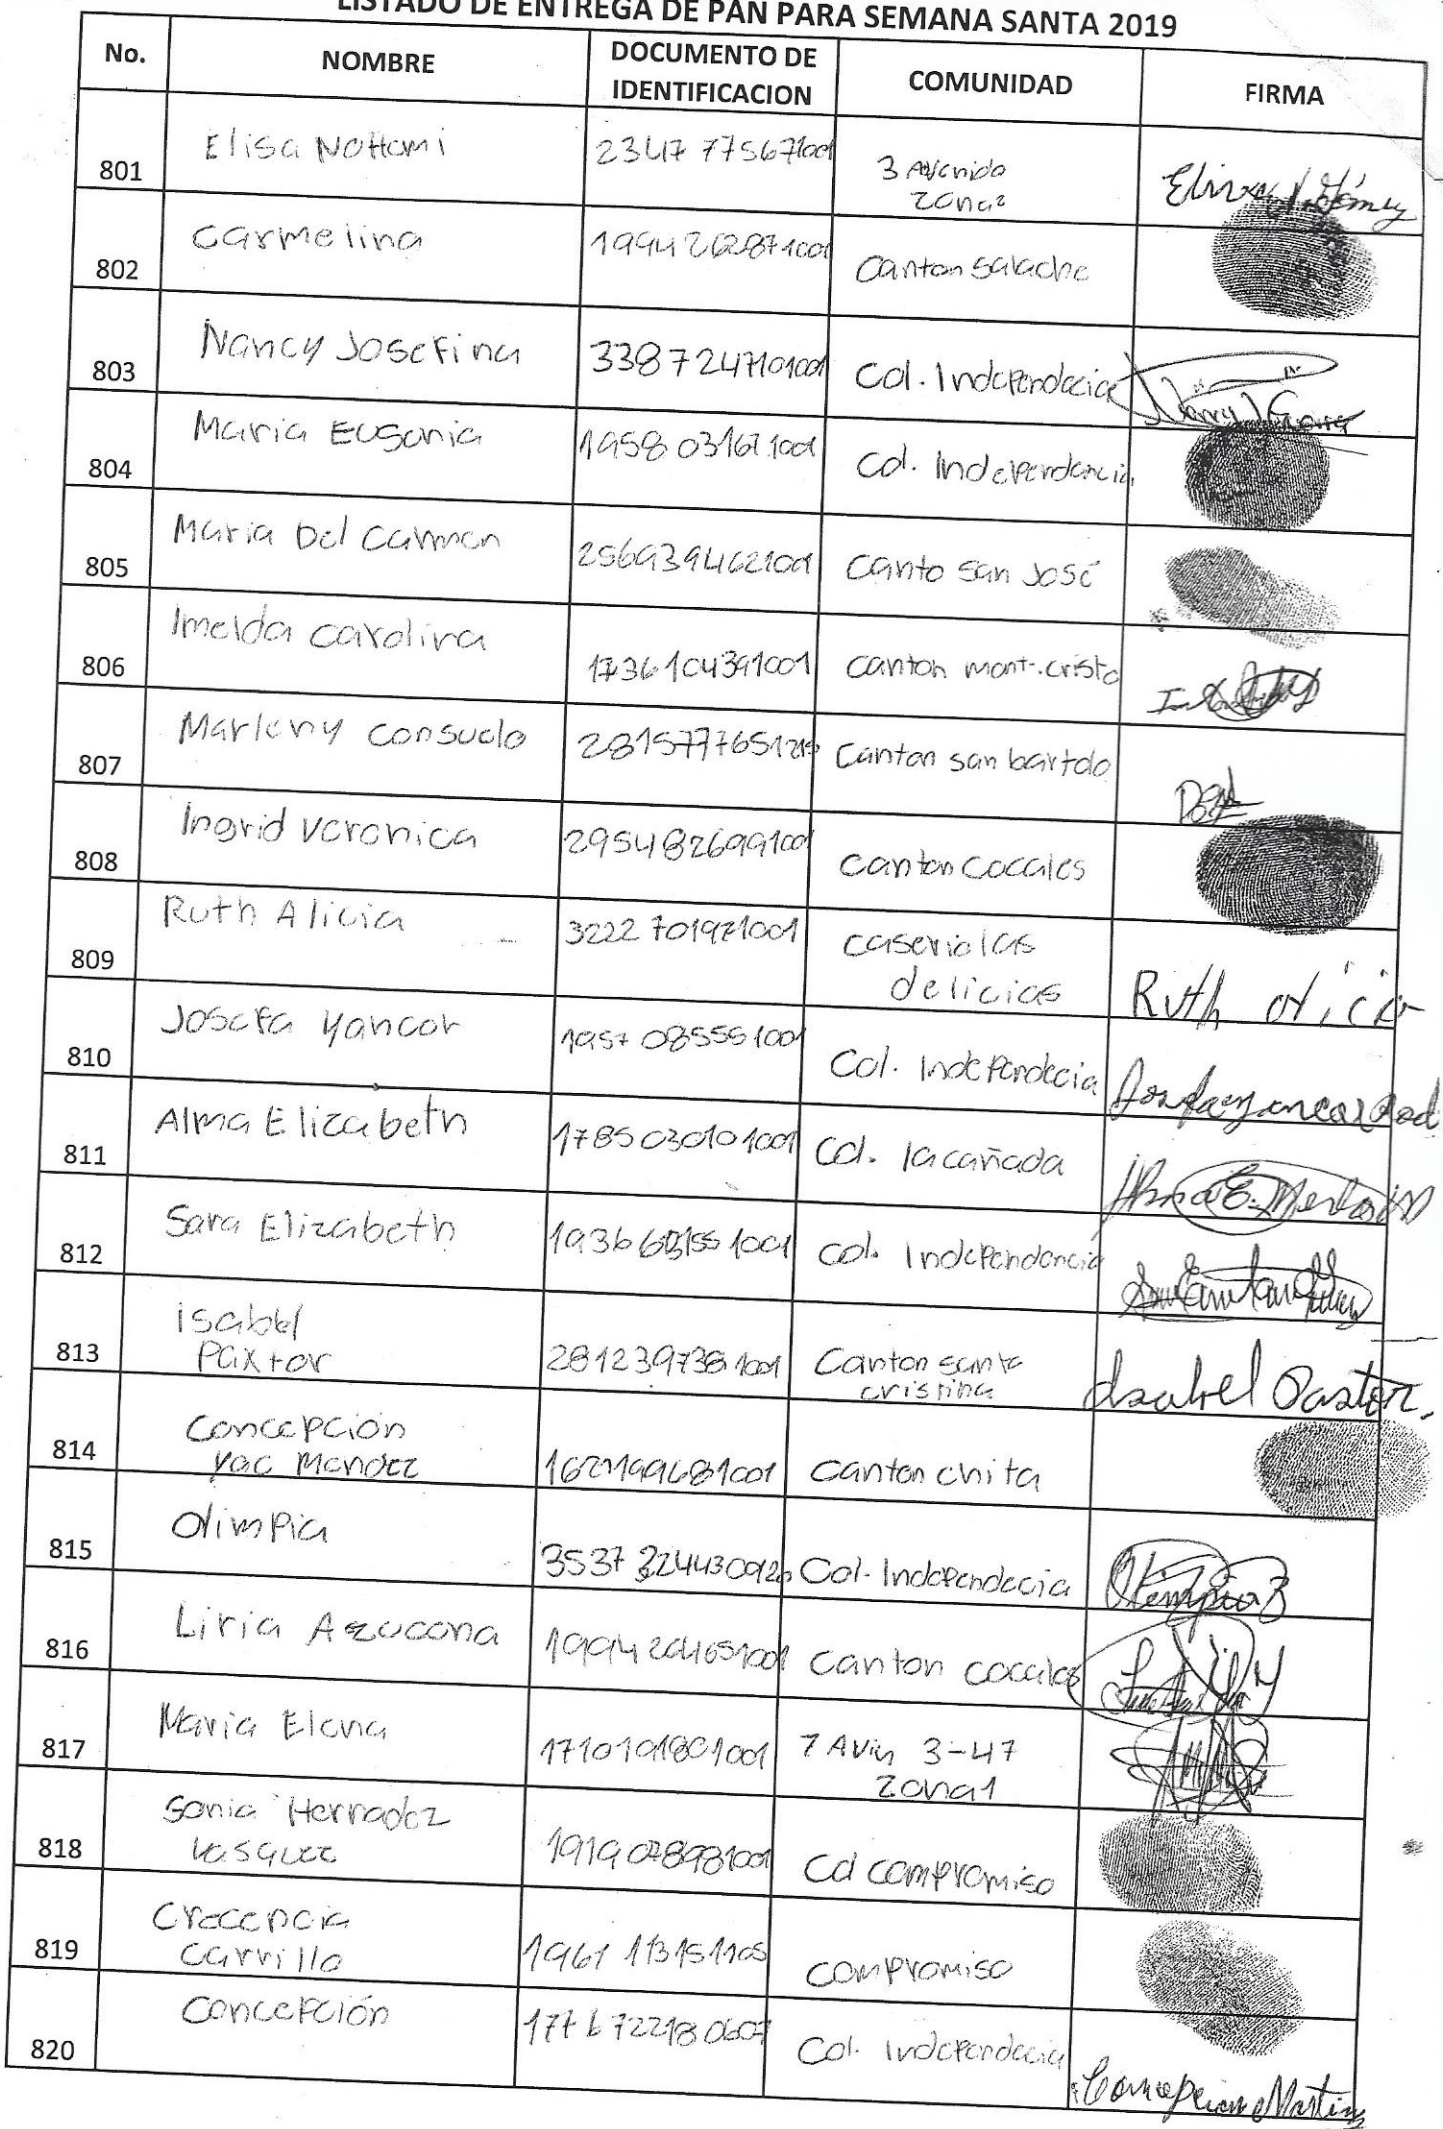 LISTADO DE ENTREGA DE PAN PARA SEMANA SANTA 2019
No. NOMBRE DOCUMENTO DE IDENTIFICACION COMUNIDAD FIRMA
801 Elisa 2347 775671001 3 Avenida
zona2
802 carmelina 1994262871001 Canton salache
803 Nancy Josefina 3387247101001 Col. Independecia
804 Maria Eugenia 1958 031671001 Col. Independencia
805 Maria Del Carmen 2569394621001 Canto San José
806 Imelda Carolina 1736104391001 canton mont-cristo
807 Marleny Consuelo Canton san bartolo
808 Ingrid Veronica 2954826991001 Canton Cocales
809 Ruth Alicia 3222701971001 caserio las
delicias Ruth Alicia
810 Josefa Yancor 1957 085551001 Col. Independecia
811 Alma Elizabeth 1785030101001 Col. la cañada
812 Sara Elizabeth Col. Independencia
813 isabel
Paxtor 2812397381001 Canton santa
cristina Isabel Paxtor.
814 Concepción
Yac Mendez Canton chita
815 Olimpia Col. Independecia
816 Liria Azucena 1994204651001 Canton cocales
817 Maria Elena 1710191801001 7 Avin 3-47
zona1
818 Sonia Hernadez
Vasquez 1919078981001 Col compromiso
819 Crecencia
Carrillo 1961 113151105 compromiso
820 Concepción 1776722180607 Col. Independecia
Concepcion Martin